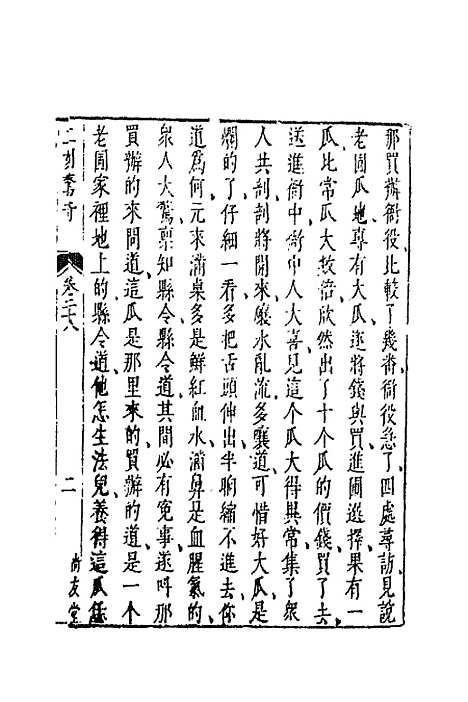 那買辦衙役比較了幾番衙役急了四處尋訪見說
老圃瓜地專有大瓜遂將錢與買進圃選擇果有一
瓜比常瓜大數倍欣然出了十个瓜的價錢買了去
送進衙中衙中人大喜見這个瓜大得異常集了眾
人共剖剖將開來瓤水亂流多嚷道可惜好大瓜是
爛的了仔細一看多把舌頭伸出半晌縮不進去你
道為何元來滿桌多是鮮紅血水滿鼻是血腥氣的
眾人大驚稟知縣令縣令道其間必有冤事遂呌那
買辦的來問道這瓜是那里來的買辦的道是一个
老圃家裡地上的縣令道他怎生法兒養得這瓜恁
二刻驚奇
卷三十八
二
尚友堂